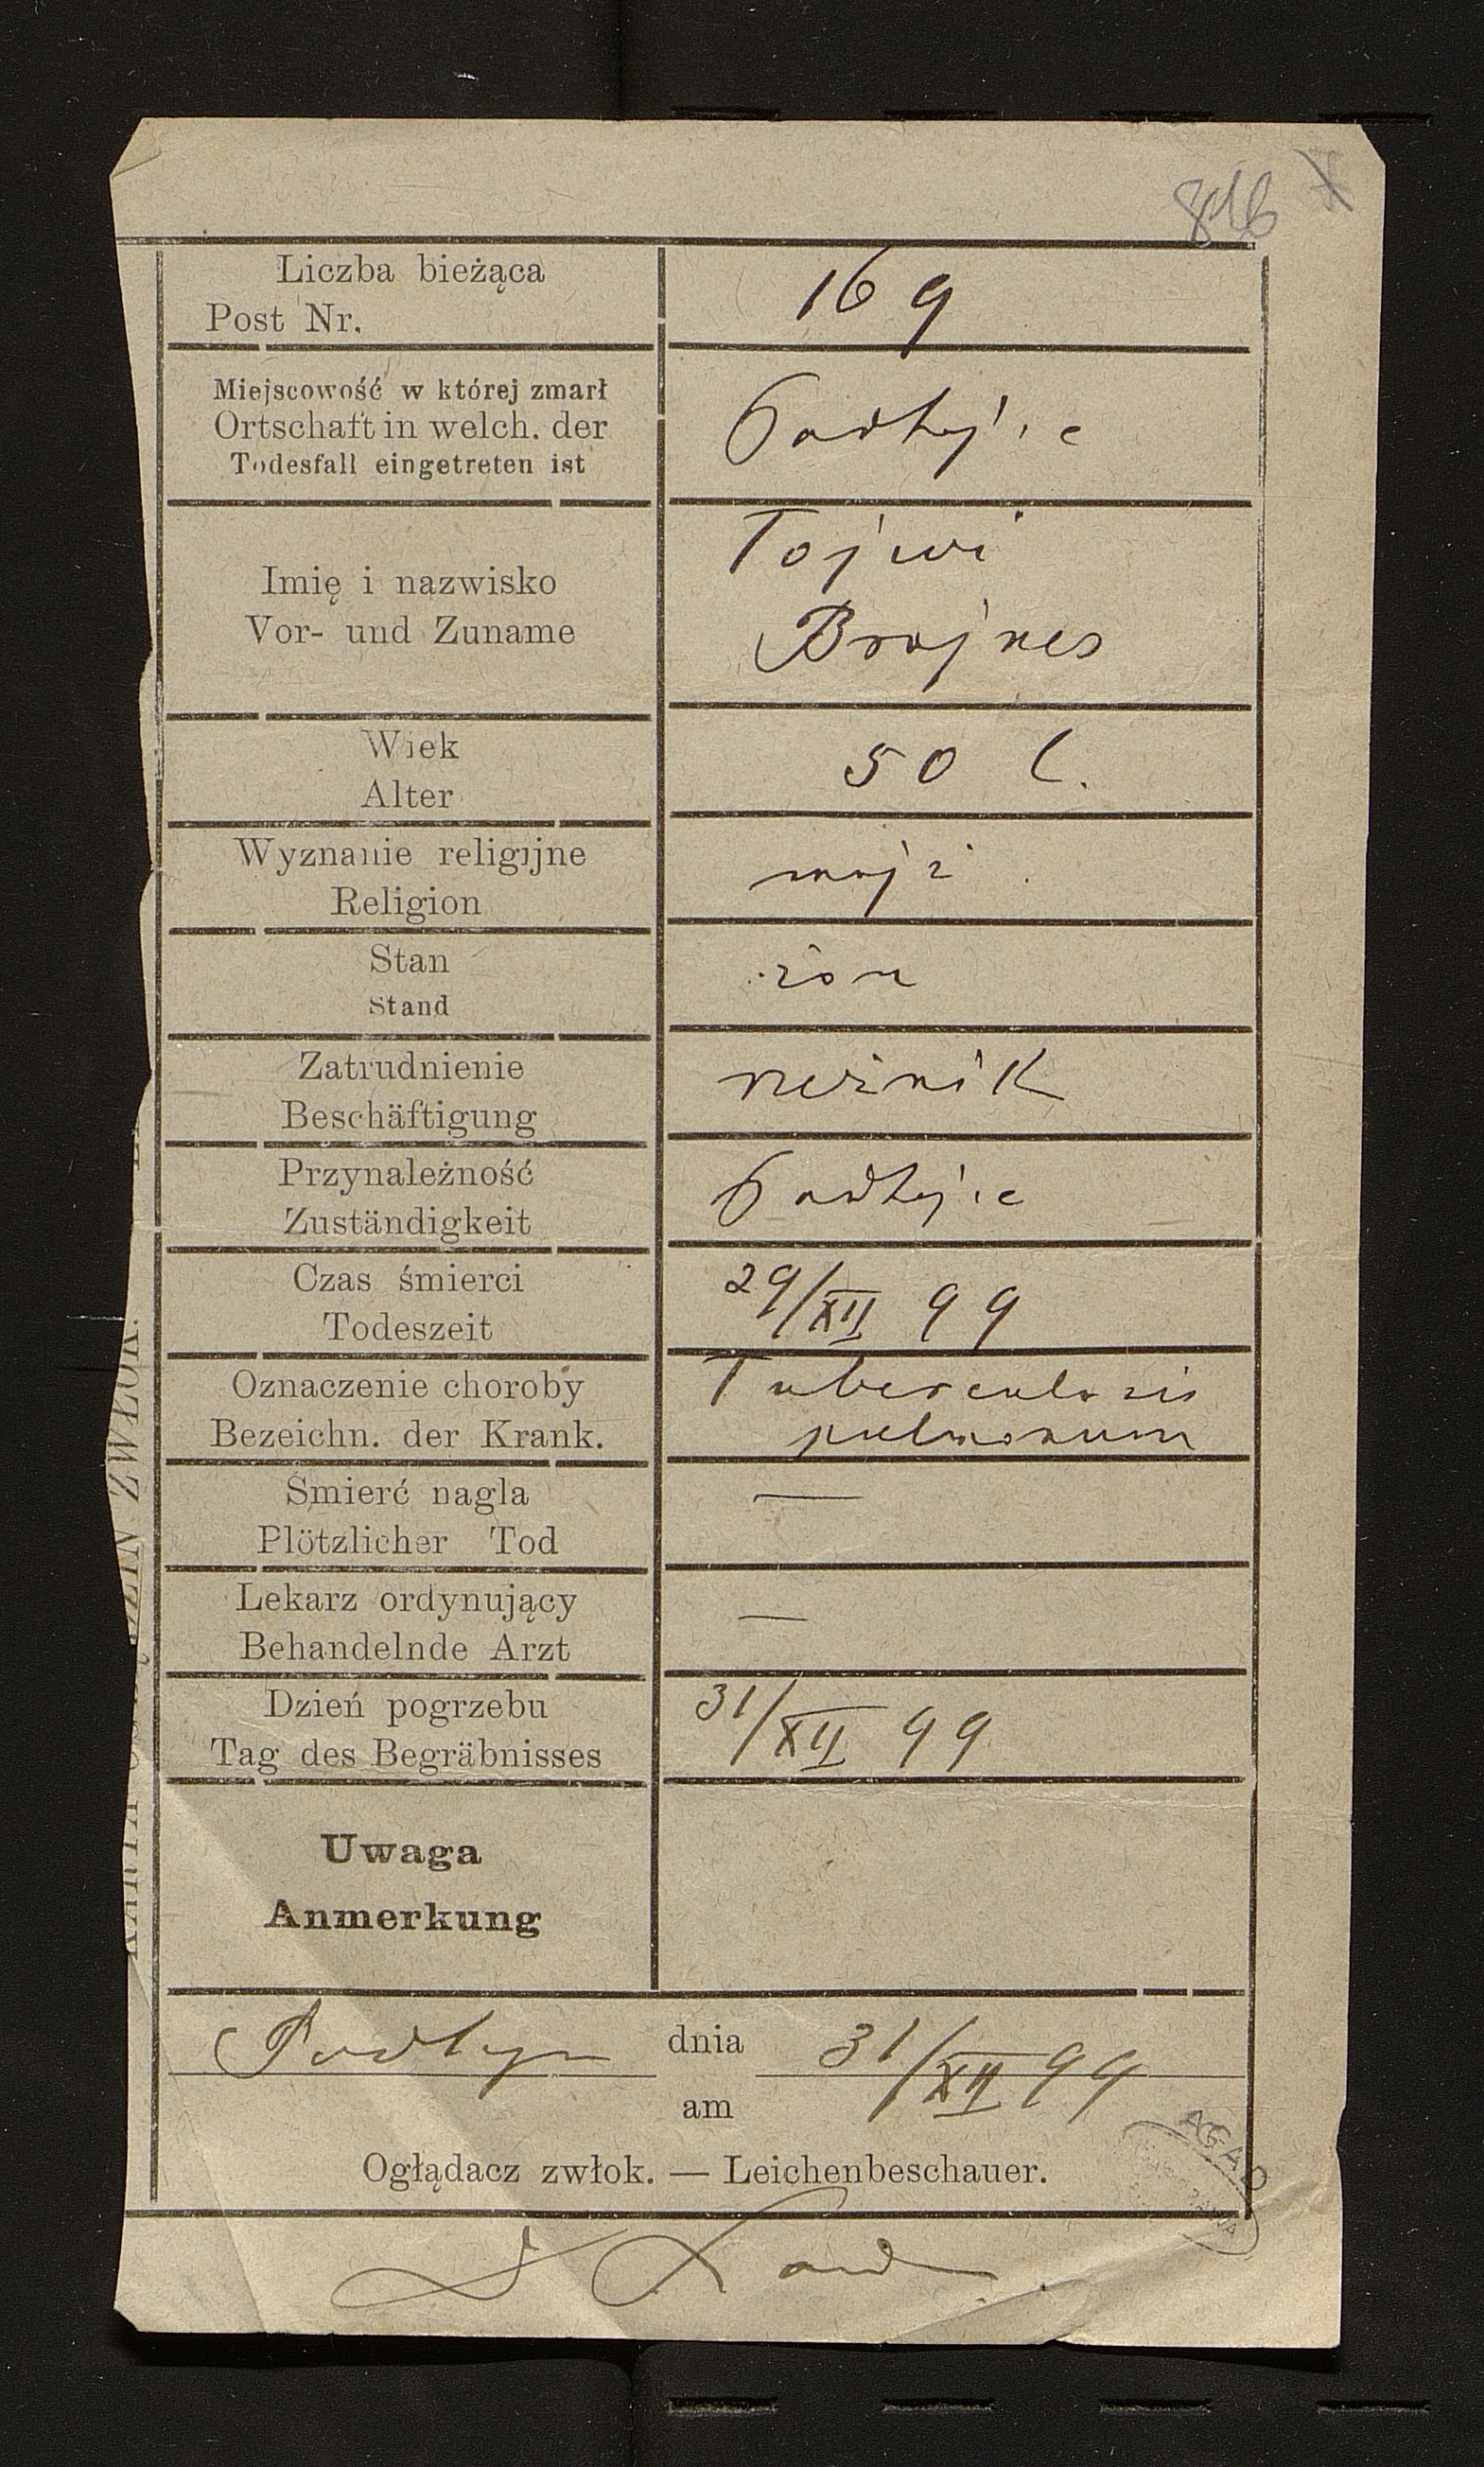 Liczba bieżąca
Post Nr.
169
Miejscowość w której zmarł
Ortschaft in welch. der
Todesfall eingetreten ist
Podhajce
Imię i nazwisko
Vor- und Zuname
Tojwi
Brajnes
Wiek
Alter
50 l.
Wyznanie religijne
Religion
mojż.
Stan
Stand
żon
Zatrudnienie
Beschäftigung
rzeźnik
Przynależność
Zuständigkeit
Podhajce
Czas śmierci
Todeszeit
29/XII 99
Oznaczenie choroby
Bezeichn. der Krank.
Tuberculosis
pulmonum
Śmierć nagła
Plötzlicher Tod
—
Lekarz ordynujący
Behandelnde Arzt
—
Dzień pogrzebu
Tag des Begräbnisses
31/XII 99
Uwaga
Anmerkung
dnia 31/XII 99
am
Oglądacz zwłok. — Leichenbeschauer.
AGAD
ZWŁOK.